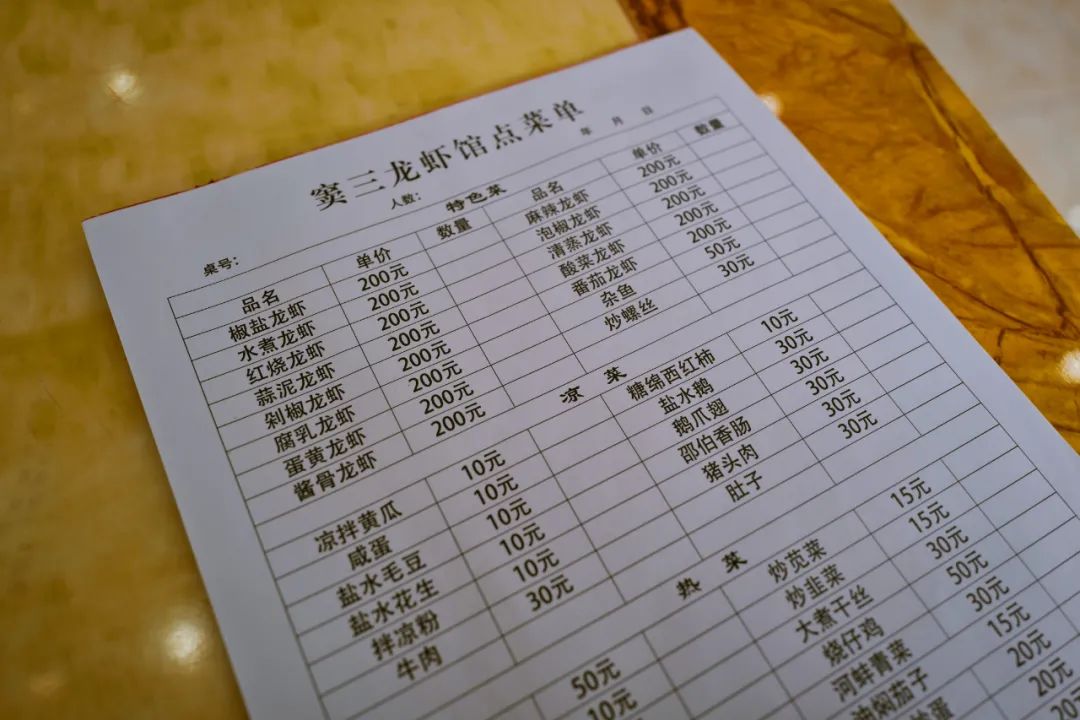 窦三龙虾馆点菜单
桌号: 人数: 年 月 日
特色菜
品名 单价 数量 品名 单价 数量
椒盐龙虾 200元 麻辣龙虾 200元
水煮龙虾 200元 泡椒龙虾 200元
红烧龙虾 200元 清蒸龙虾 200元
蒜泥龙虾 200元 酸菜龙虾 200元
剁椒龙虾 200元 番茄龙虾 200元
腐乳龙虾 200元 杂鱼 50元
蛋黄龙虾 200元 炒螺丝 30元
酱骨龙虾 200元
凉 菜
凉拌黄瓜 10元 糖绵西红柿 10元
咸蛋 10元 盐水鹅 30元
盐水毛豆 10元 鹅爪翅 30元
盐水花生 10元 邵伯香肠 30元
拌凉粉 10元 猪头肉 30元
牛肉 30元 肚子 30元
热 菜
50元 炒苋菜 15元
10元 炒韭菜 15元
大煮干丝 30元
烧仔鸡 50元
河蚌青菜 30元
油焖茄子 15元
蛋 20元
20元